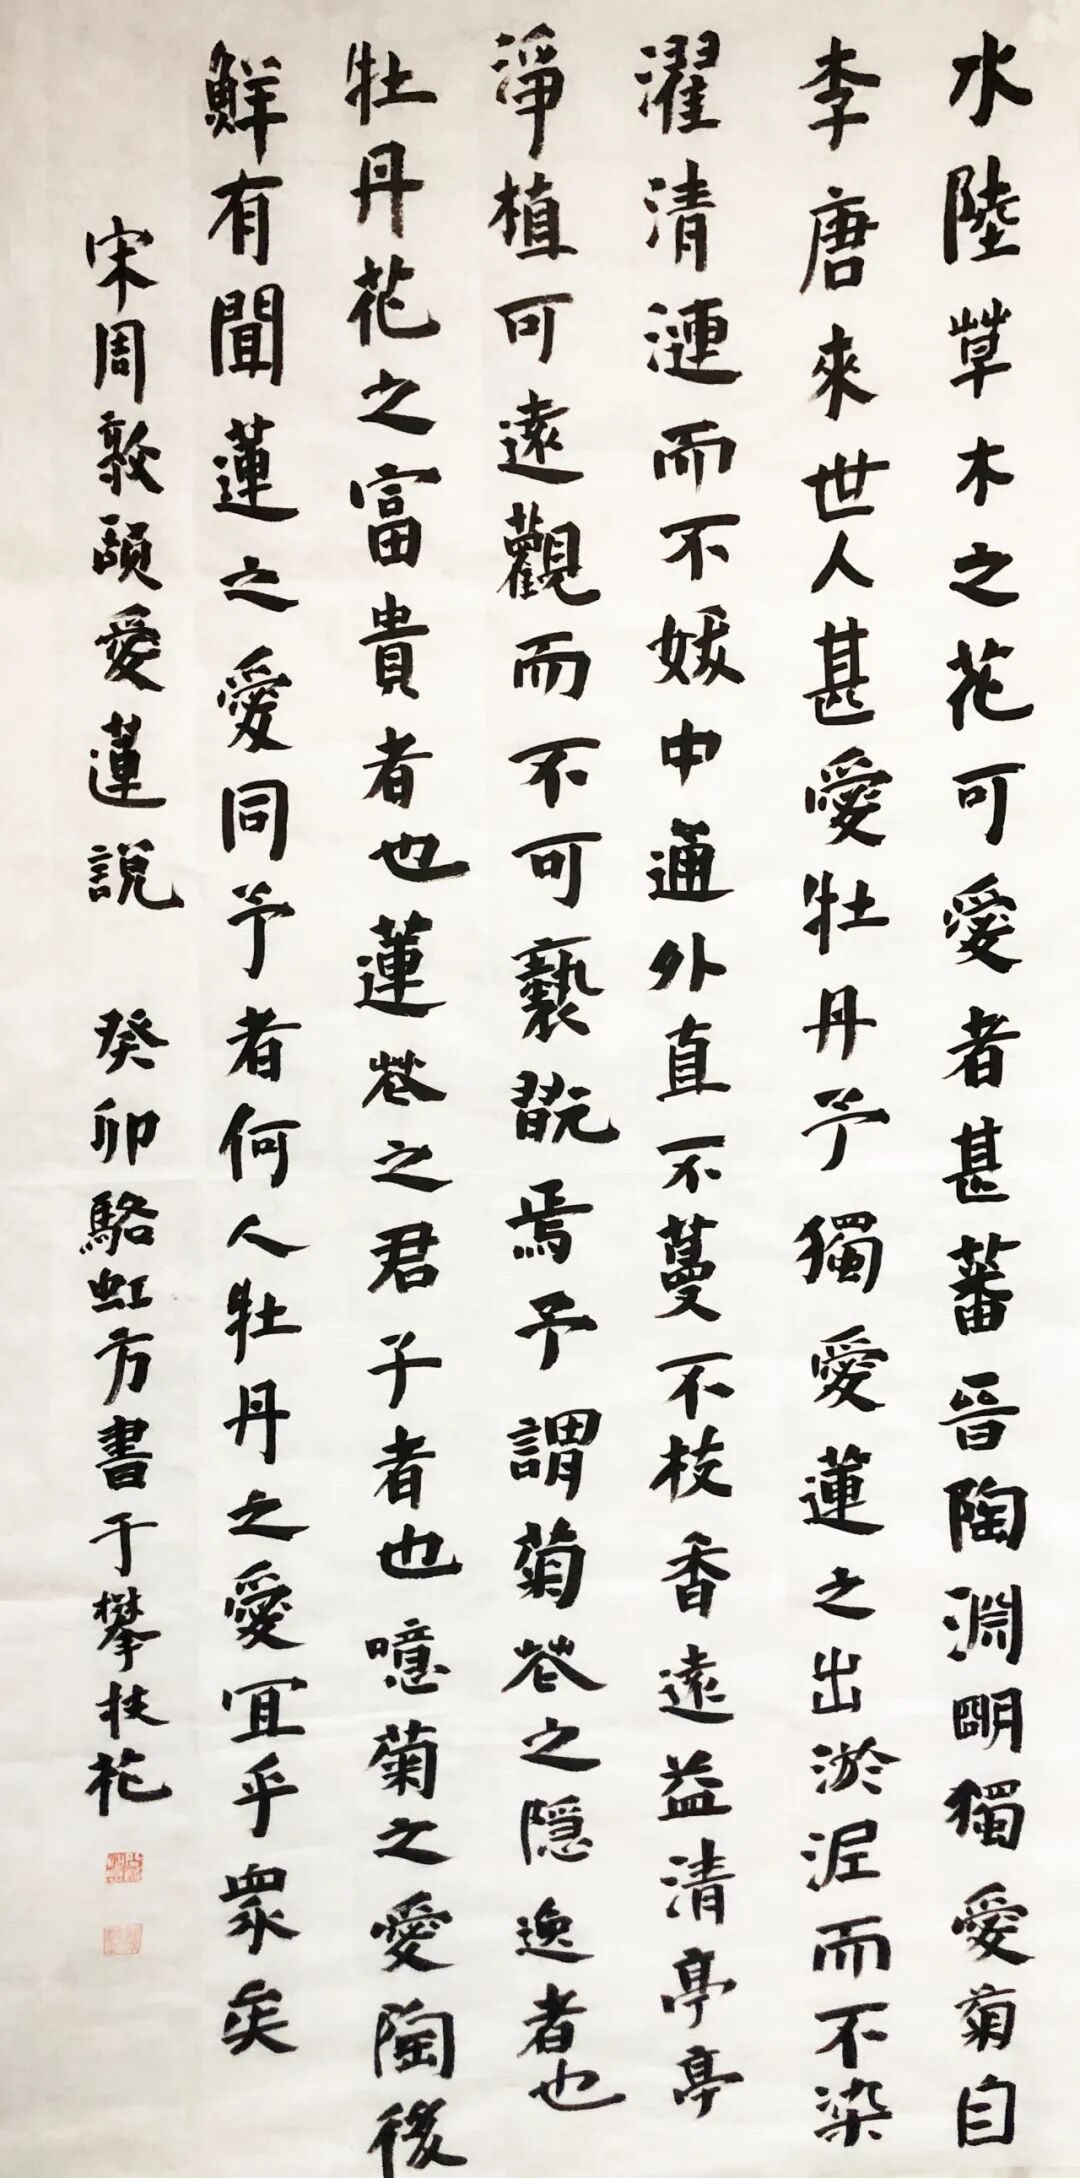 水陸草木之花可愛者甚蕃晉陶淵明獨愛菊自
李唐來世人甚愛牡丹予獨愛蓮之出淤泥而不染
濯清漣而不妖中通外直不蔓不枝香遠益清亭亭
淨植可遠觀而不可褻翫焉予謂菊花之隱逸者也
牡丹花之富貴者也蓮花之君子者也噫菊之愛陶後
鮮有聞蓮之愛同予者何人牡丹之愛宜乎眾矣
宋周敦頤愛蓮說 癸卯駱虹方書于攀枝花